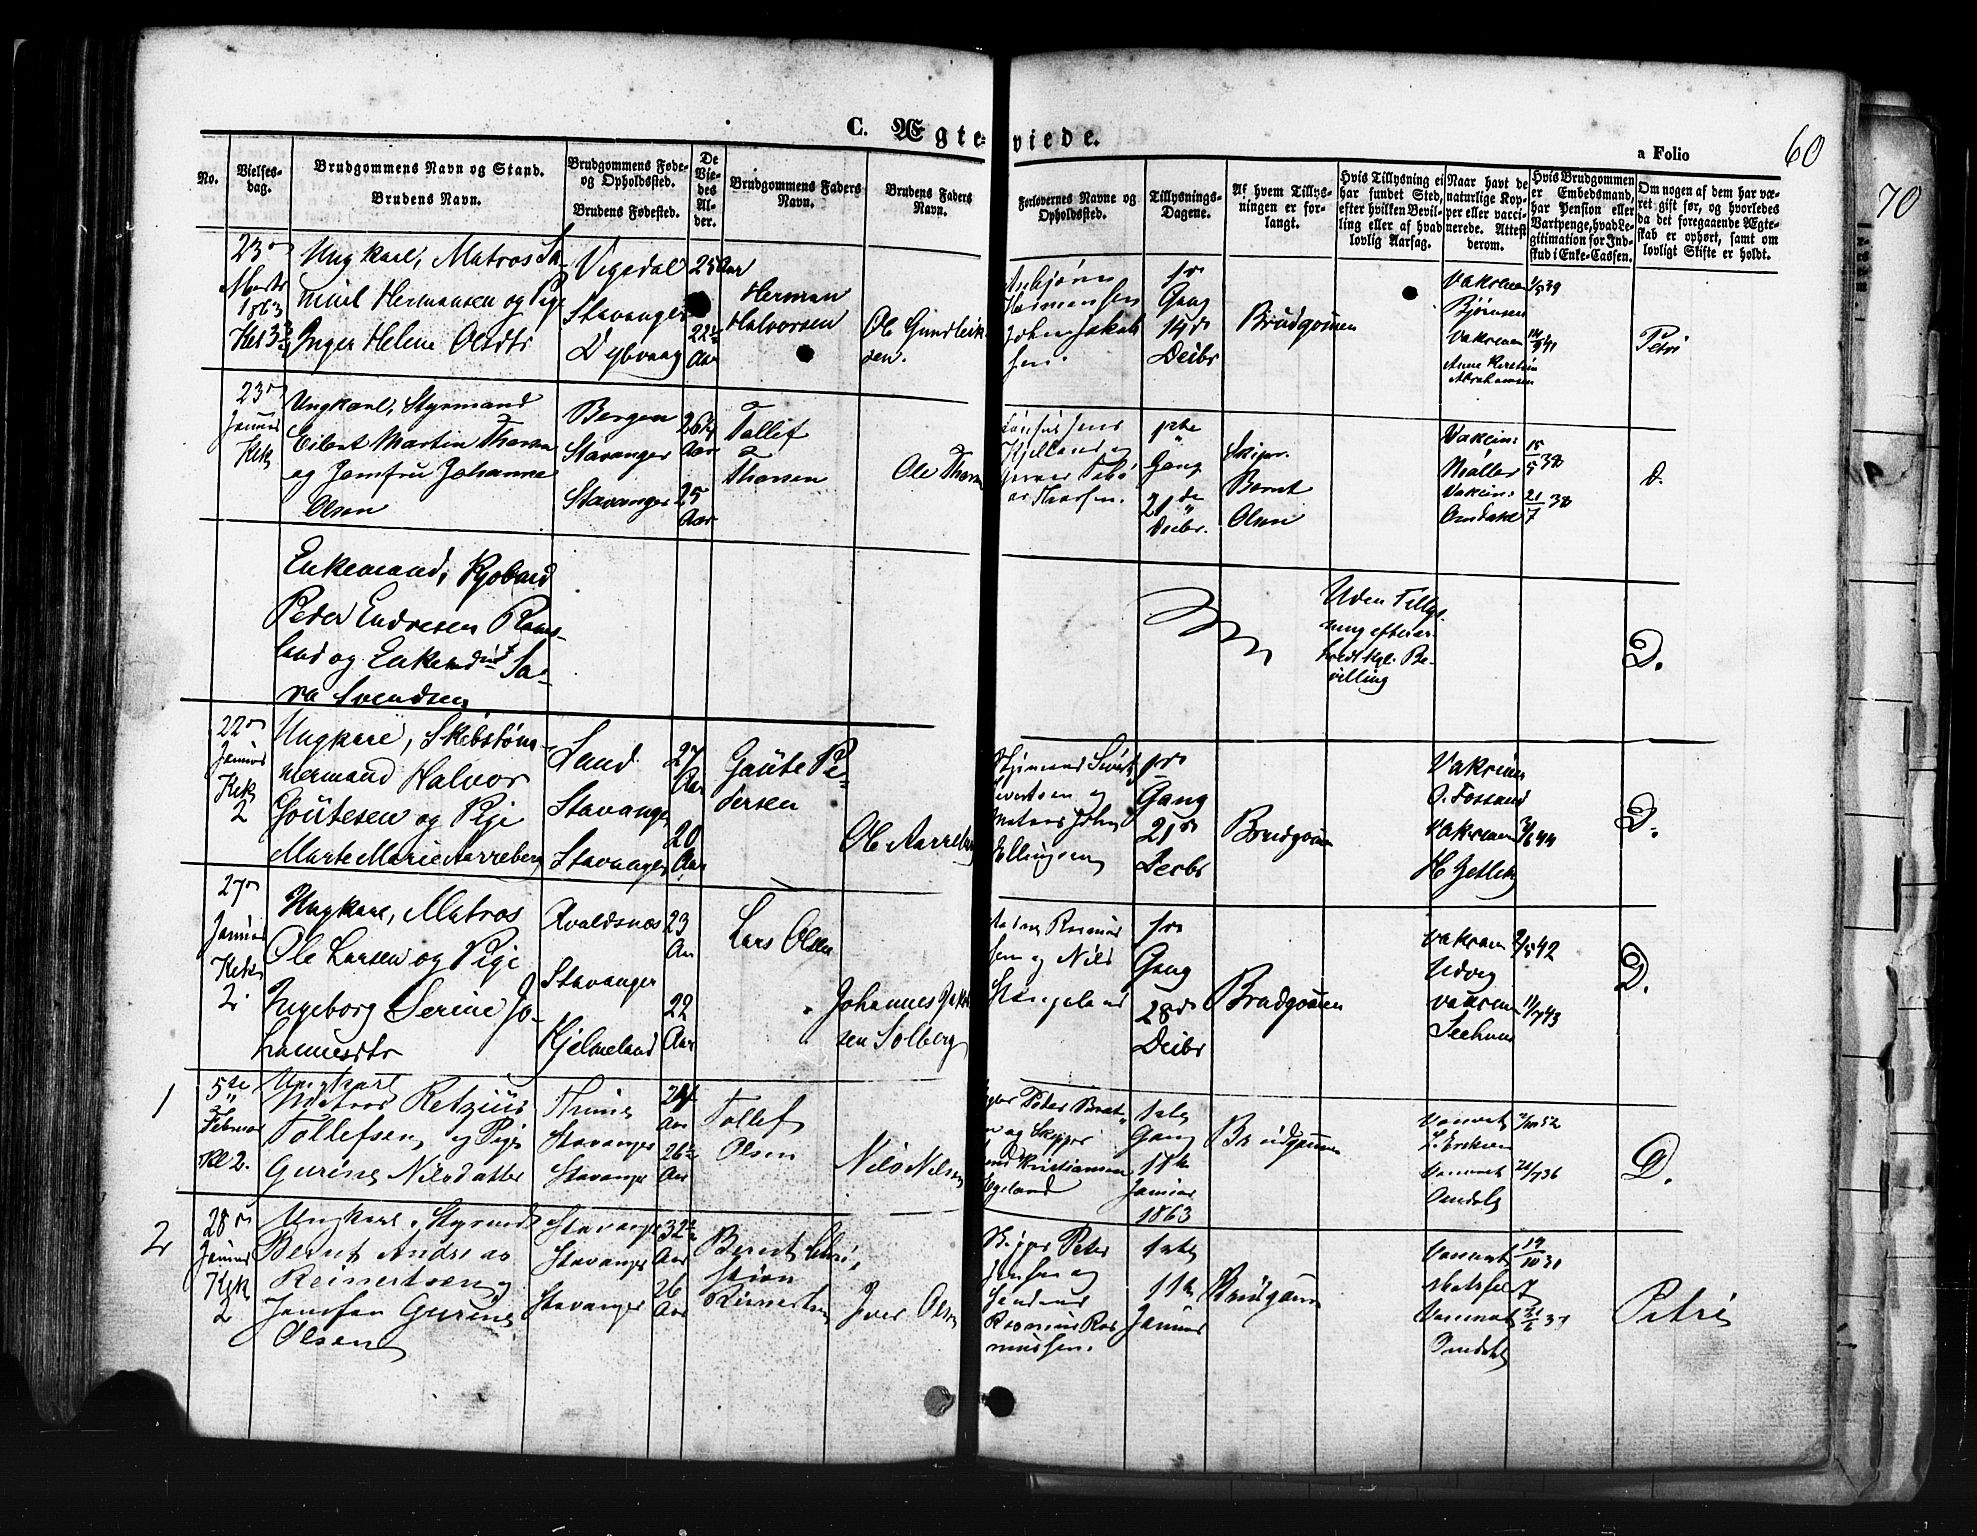 C. Ægteviede.
a Folio
60
70
No.
Vielses-
dag.
Brudgommens Navn og Stand.
Brudens Navn.
Brudgommens Føde-
og Opholdssted.
Brudens Fødested.
De
Vie-
des
Al-
der.
Brudgommens Faders
Navn.
Brudens Faders
Navn.
Forlovernes Navne og
Opholdssted.
Tillysnings-
Dagene.
Af hvem Tillys-
ningen er for-
langt.
Hvis Tillysning ei
har fundet Sted,
efter hvilken Bevil-
ling eller af hvad
lovlig Aarsag.
Naar havt de
naturlige Kop-
per eller vacci-
nerede. Attest
derom.
Hvis Brudgommen
er Embedsmand,
har Pension eller
Vartpenge, hvad Le-
gitimation for Ind-
skud i Enke-Cassen.
Om nogen af dem har væ-
ret gift før, og hvorledes
da det foregaaende Ægte-
skab er ophørt, samt om
lovligt Skifte er holdt.
23
Marts
1863
Ungkarl, Matros Sa-
muel Hermansen og Pige
Inger Helene Olsdtr
Vigedal
Stavanger
Dybvaag
25 Aar
22
Aar
Herman
Halvorsen
Ole Gundleik-
sen.
Hermansen
John Jakob-
sen.
Gang
14de
Decbr
Brudgommen
Bjørnsen
Anne Kirstin
Abrahamsen
Petri
23
Januar
Ungkarl, Styrmand
Eilert Martin Thorsen
og Jomfru Johanne
Olsen
Bergen
Stavanger
Stavanger
26
Aar
25
Aar
Tollef
Thorsen
Ole Thorsen
Kjelland og
Gang
21de
Decbr.
Skipr.
Bernt
Olsen
Vakcin:
Møller
15/5 38
Vakcin:
21/7 38
D.
Enkemand, Kjøbmd
Peder Endresen Rams-
land og Enkemd Sa-
ra Svendsen
Uden Tillys-
ning efter er-
hvedt Kgl. Be-
villing
D.
22
Januar
2
Ungkarl, Skibstøm-
mermand Halvor
Goutesen og Pige
Marte Marie Aarreberg
Land
Stavanger
Stavanger
27
Aar
20
Aar
Goute Pe-
dersen
Ole Aarreberg
Sivertsen og
Matros John
Ellingsen
Gang
21
Decbr
Brudgommen
O. Fossand
3/6 44
H Jetlek
D.
27
Januar
2.
Ungkarl, Matros
Ole Larsen og Pige
Ingeborg Serine Jo-
hannesdtr
Avaldsnæs
Stavanger
Hjelmeland
23
Aar
22
Aar
Lars Olsen
Johannes Jakob-
sen Solberg
sen og Nils
Stangeland
Gang
28de
Decbr
Brudgommen
9/5 42
Udvig
11/7 43
D.
1
5te
Februar
Kl 2.
Ungkarl
Matros Retzius
Tollefsen og Pige
Gurine Nilsdatter
Stavanger
Stavanger
24
Aar
26
Aar
Tollef
Olsen
Nils Nilsen
n og Skipper
Kristiansen
Egeland
1ste
Gang
11te
Januar
1863
Brudgommen
Vaccnt
L. Eriksen
Vaccnt
26/7 36
Omdal
D.
2
28
Januar
2
Ungkarl, Styrmd
Bernt Andreas
Reinertsen og
Jomfru Gurine
Olsen
Stavanger
Stavanger
Stavanger
32
Aar
26
Aar
Bernt Chri-
stian
Reinertsen
Iver Olsen
Skipper Peter
Jensen og
Rasmus Ras-
mussen.
1ste
11te
Januar
Brudgom
Vaccnt
19/10 31
Vaccnt
21/6 37
Omdal
Petri